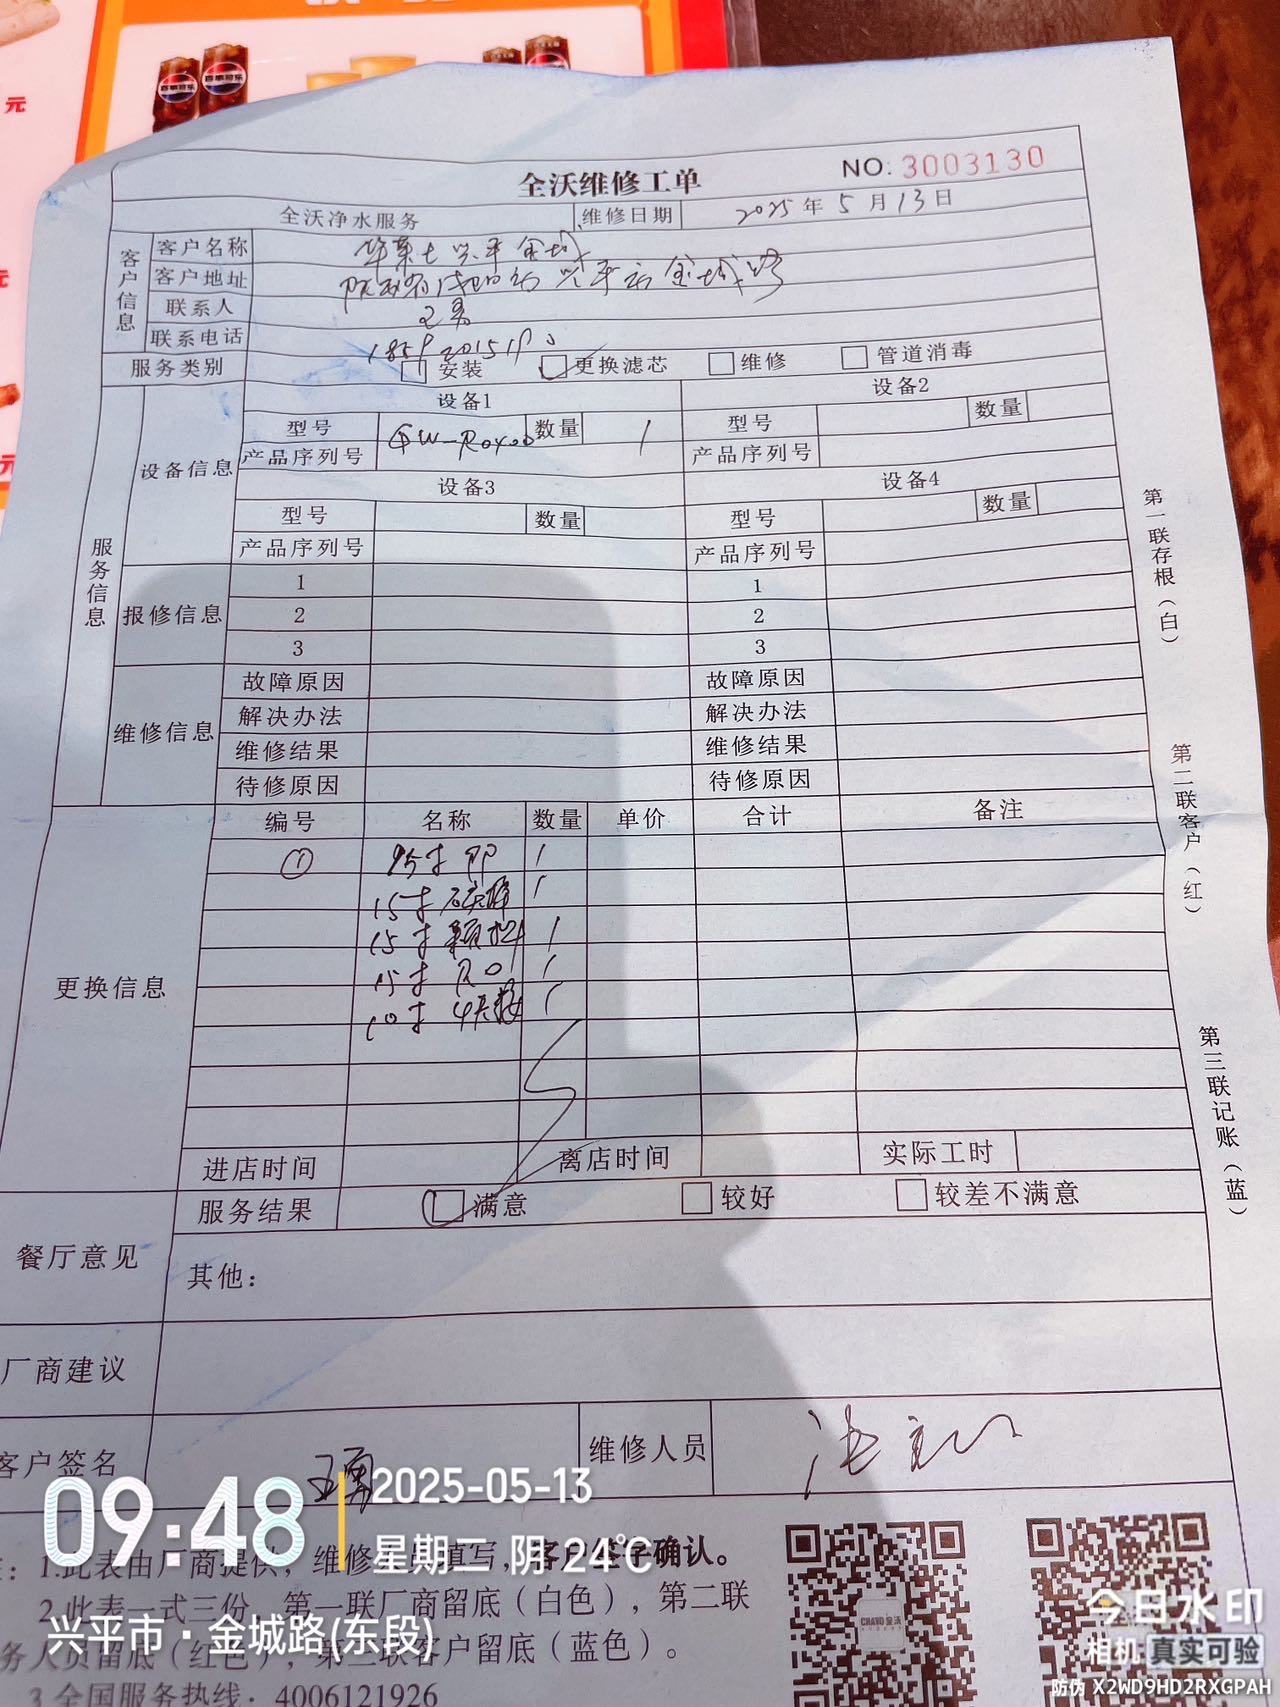 元
元
全沃维修工单
NO: 3003130
全沃净水服务 维修日期 2025年5月13日
客户信息
客户名称 华莱士兴平金城
客户地址 兴平市金城路
联系人 王勇
联系电话
服务类别 安装 更换滤芯 维修 管道消毒
服务信息
设备信息
设备1 设备2
型号 数量 1 型号 数量
产品序列号 产品序列号
设备3 设备4
型号 数量 型号 数量
产品序列号 产品序列号
报修信息
1 1
2 2
3 3
维修信息
故障原因 故障原因
解决办法 解决办法
维修结果 维修结果
待修原因 待修原因
更换信息
编号 名称 数量 单价 合计 备注
① 15寸 PP 1
15寸 1
15寸 颗粒 1
15寸 RO 1
10寸 1
进店时间 离店时间 实际工时
餐厅意见
服务结果 满意 较好 较差不满意
其他：
厂商建议
客户签名 王勇 维修人员
第一联存根（白）
第二联客户（红）
第三联记账（蓝）
1.此表由厂商提供，维修 填写，客户签字确认。
2.此表一式三份，第一联厂商留底（白色），第二联
务人员留底（红色），第三联客户留底（蓝色）。
3.全国服务热线：4006121926
CHAVO全沃
09:48
2025-05-13
星期二 阴 24℃
兴平市·金城路(东段)
今日水印
相机 真实可验
防伪 X2WD9HD2RXGPAH